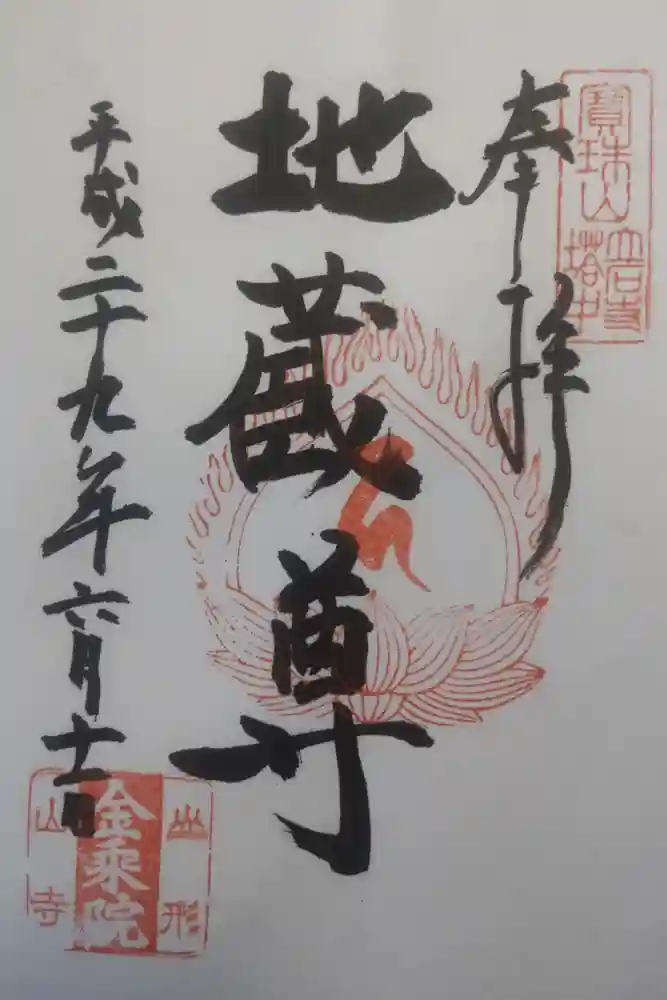 奉拝
寶珠山
立石寺
塔中
地蔵尊
平成二十九年六月十一日
山形
金乗院
山寺